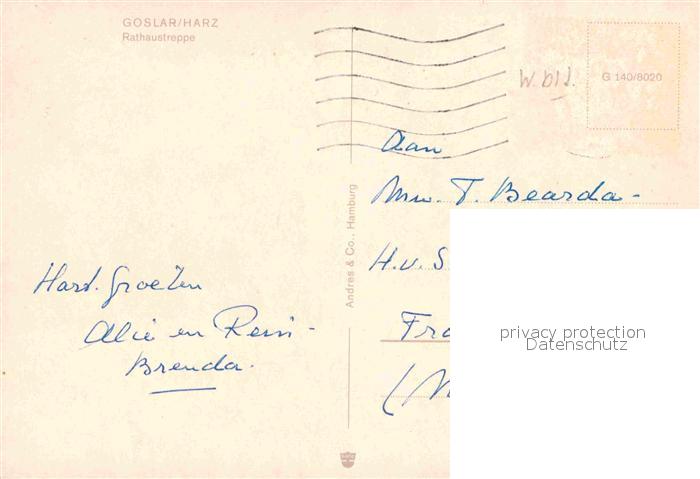 GOSLAR/HARZ
Rathaustreppe
G 140/8020
Aan
Mw. T. Bearda-
H.v.S
Fra
(N
Andres & Co., Hamburg
Hart. Groeten
Alie en Rein -
Brenda.
privacy protection
Datenschutz